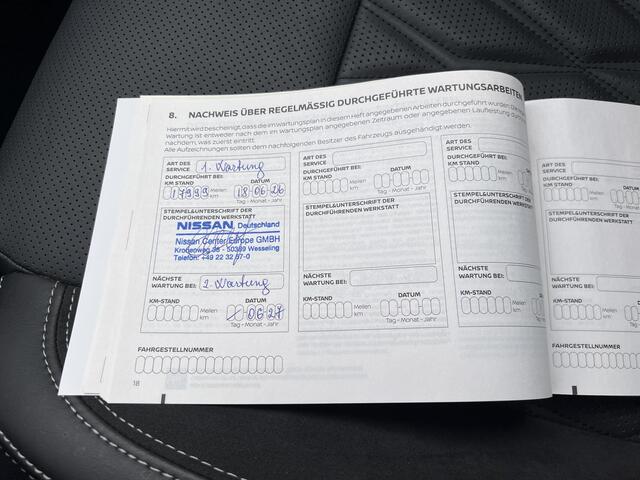 8. NACHWEIS ÜBER REGELMÄSSIG DURCHGEFÜHRTE WARTUNGSARBEITEN
Hiermit wird bescheinigt, dass die im Wartungsplan in diesem Heft angegebenen Arbeiten durchgeführt wurden. Die
Wartung ist entweder nach dem im Wartungsplan angegebenen Zeitraum oder angegebenen Laufleistung durch
nachdem, was zuerst eintritt.
Alle Aufzeichnungen sollten dem nachfolgenden Besitzer des Fahrzeugs ausgehändigt werden.
ART DES SERVICE 1. Wartung
DURCHGEFÜHRT BEI:
KM STAND DATUM
17999 Meilen km 18 06 26
Tag - Monat - Jahr
STEMPEL&UNTERSCHRIFT DER
DURCHFÜHRENDEN WERKSTATT
NISSAN, Deutschland
Nissan Center Europe GMBH
50389 Wesseling
Telefon: +49 22 32 57-0
NÄCHSTE WARTUNG BEI: 2. Wartung
KM-STAND DATUM
Meilen km 06 27
Tag - Monat - Jahr
ART DES SERVICE
DURCHGEFÜHRT BEI:
KM STAND DATUM
Meilen km
Tag - Monat - Jahr
STEMPEL&UNTERSCHRIFT DER
DURCHFÜHRENDEN WERKSTATT
NÄCHSTE WARTUNG BEI:
KM-STAND DATUM
Meilen km
Tag - Monat - Jahr
ART DES SERVICE
DURCHGEFÜHRT BEI:
KM STAND
STEMPEL&UNTERSCHRIFT DER
DURCHFÜHRENDEN WERKSTATT
NÄCHSTE WARTUNG BEI:
KM-STAND
FAHRGESTELLNUMMER
FAHRGESTELLNUMMER
18